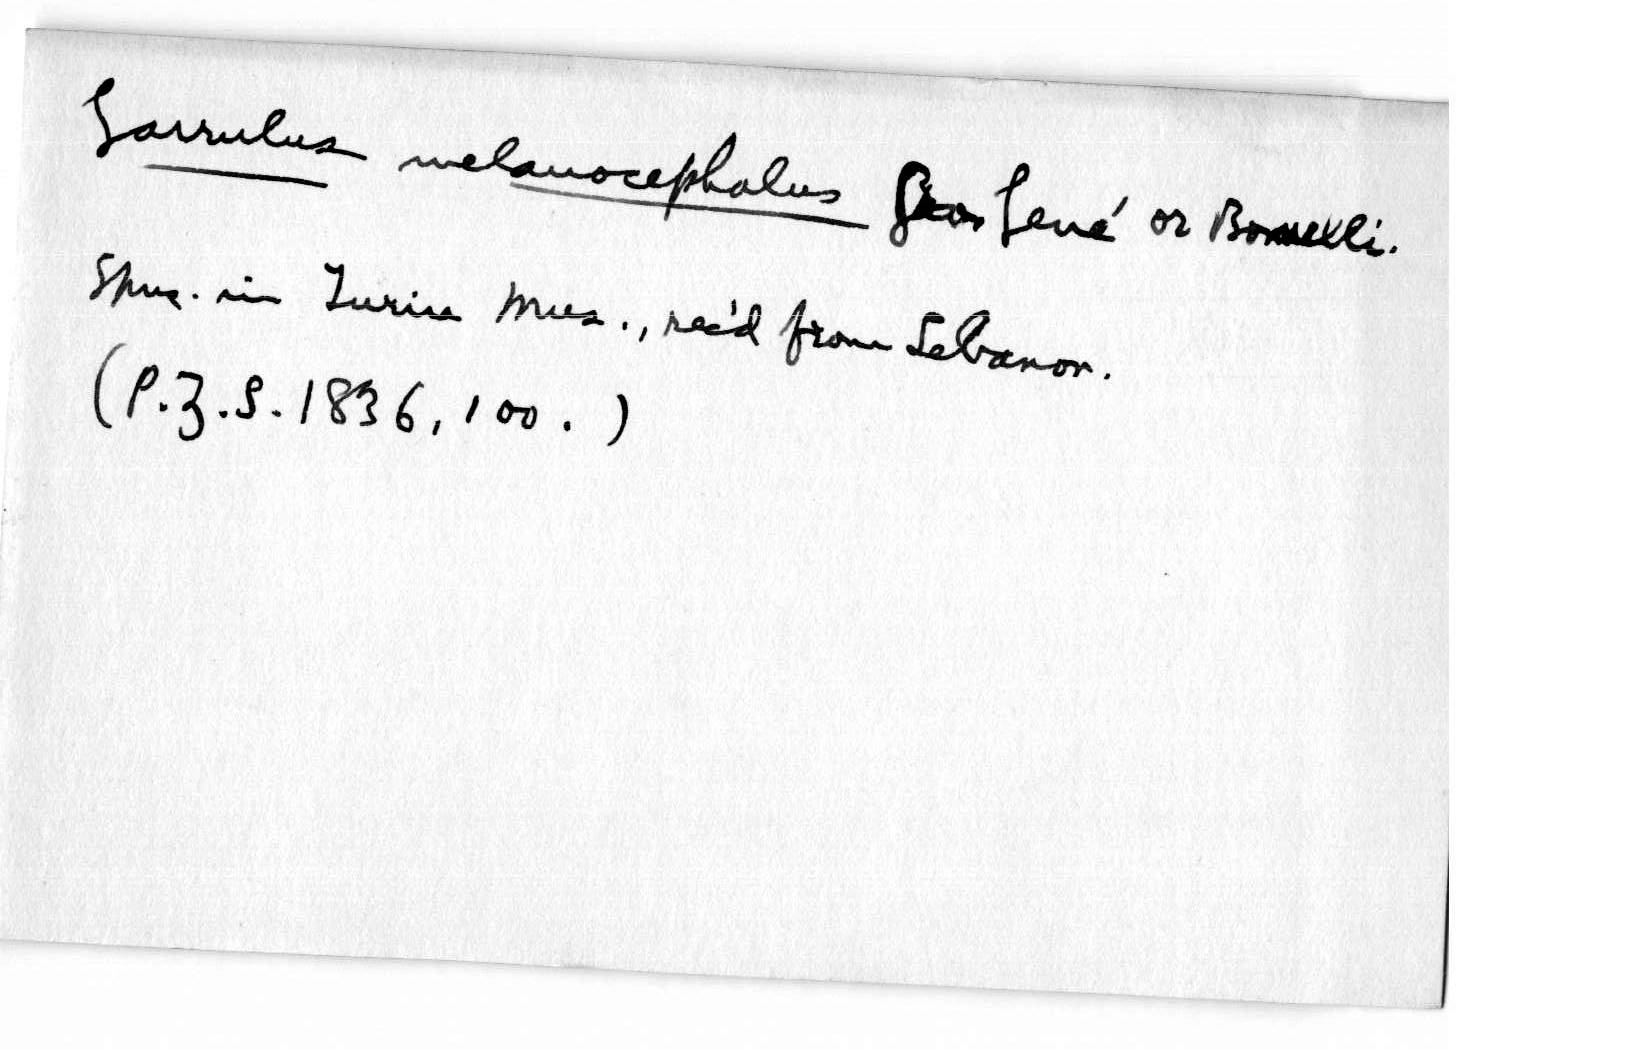 Garrulus melanocephalus Gené or Bonelli.
Spec. in Turin Mus., rec'd from Lebanon.
(P.Z.S. 1836, 100.)